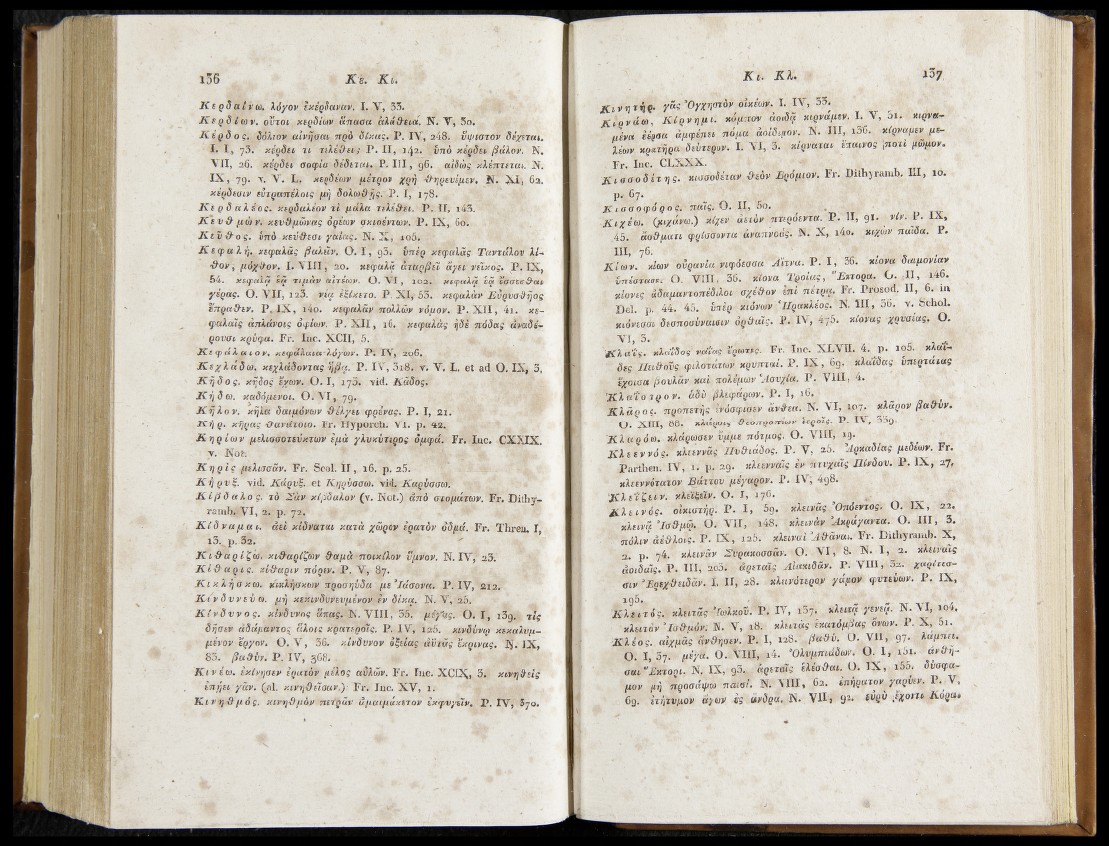 136 Κε. Κι.
Κερδαίνω. λόγον ἐκέρδαναν. I. V, 33.
Κερδίων. οὔτοι κερδίων ἅπασα ἀλάθεια. N. V, 30.
Κέρδος. δόλιον αἰνῆσαι πρὸ δίκας. P. IV, 248. ὕψιστον δέχεται.
I. I, 73. κέρδει τι τιλέθει; P. II, 142. ὑπὸ κέρδει βάλον. N.
VII, 26. κέρδει σοφία δέδεται. P. III, 96. αἰδὼς κλέπτεται. N.
IX, 79. v. V. L. κερδέων μέτρον χρὴ θηρευέμεν. N. XI, 62.
κέρδεσιν εὐτραπέλοις μὴ δολωθῇς. P. I, 178.
Κερδαλέος. κερδαλέον τί μάλα τιλέθει. P. II. 143.
Κευθμών. κευθμῶνας ὀρέων σκιοέντων. P. IX, 60.
Κεῦθος. ὑπὸ κεύθεσι γαίας. N. X, 105.
Κεφαλή. κεφαλᾶς βαλεῖν. O. I, 93. ὑπὲρ κεφαλᾶς Ταντάλου λί-
θον, μόχθον. I. VIII, 20. κεφαλᾷ ἀταρβεῖ ἄγει νεῖκος. P. IX,
54. κεφαλᾷ ἑᾷ τιμὰν αἰτέων. O. VI, 102. κεφαλᾷ ἑᾷ ἔσσεσθαι
γέρας. O. VII, 123. νιᾳ ἐξίκετο. P. XI, 53. κεφαλὰν Εὐρυσθῆος
ἔπραθεν. P. IX, 140. κεφαλᾶν πολλᾶν νόμον. P. XII, 41. κε-
φαλαῖς ἀπλάνοις ὀφίων. P. XII, 16. κεφαλὰς ἠδὲ πόδας ἀναδέ-
ρουσι κρύφα. Fr. Inc. XCII, 5.
Κεφάλαιον. κεφάλαια λόγων. P. IV, 206.
Κεχλάδω. κεχλάδοντας ἥβᾳ. P. IV, 318. v. V. L. et ad O. IX, 3.
Κῆδος. κῆδος ἔχων. O. I, 173. vid. Κᾶδος.
Κήδω. καδόμενοι. O. VI, 79.
Κῆλον. κῆλα δαιμόνων θέλγει φρένας. P. I, 21.
Κήρ. κῆρας θανάτοιο. Fr. Hyporch. VI. p. 42.
Κηρίων μελισσοτεύκτων ἐμὰ γλυκύτερος ὀμφά. Fr. Inc. CXXIX.
v. Not.
Κηρὶς μελισσᾶν. Fr. Scol. II, 16. p. 25.
Κήρυξ. vid. Κάρυξ. et Κηρύσσω. vid. Καρύσσω.
Κίβδαλος. τὸ Σὰν κίβδαλον (v. Not.) ἀπὸ στομάτων. Fr. Dithy-
ramb. VI, 2. p. 72.
Κίδναμαι. ἀεὶ κίδναται κατὰ χῶρον ἐρατὸν ὀδμά. Fr. Thren. I,
13. p. 32.
Κιθαρίζω. κιθαρίζων θαμὰ ποικίλον ὕμνον. N. IV, 23.
Κίθαρις. κίθαριν πόρεν. P. V, 87.
Κικλήσκω. κικλήσκων προσηύδα με Ἰάσονα. P. IV, 212.
Κινδυνεύω. μὴ κεκινδυνευμένον ἐν δίκᾳ. N. V, 25.
Κίνδυνος. κίνδυνος ἅπας. N. VIII, 35. μέγας. O. I, 139. τίς
δῆσεν ἀδάμαντος ἅλοις κρατεροῖς. P. IV, 125. κινδύνῳ κεκαλυμ-
μένον ἔργον. O. V, 36. κίνδυνον ὀξείας ἀϋτᾶς ἔκρινας. N. IX,
83. βαθύν. P. IV, 368.
Κινέω. ἐκίνησεν ἐρατὸν μέλος αὐλῶν. Fr. Inc. XCIX, 3. κινηθεὶς
ἐπῄει γᾶν. (al. κινηθεῖσαν.) Fr. Inc. XV, 1.
Κινηθμός. κινηθμὸν πετρᾶν ἀμαιμάκετον ἐκφυγεῖν. P. IV, 370.
Κι. Κλ. 137
Κινητήρ. γᾶς Ὀγχηστὸν οἰκέων. I. IV, 33.
Κιρνάω, Κίρνημι. κόμπον ἀοιδᾷ κιρνάμεν. I. V, 31. κιρνα-
μένα ἔερσα ἀμφέπει πόμα ἀοίδιμον. N. III, 136. κίρναμεν με-
λέων κρατῆρα δεύτερον. I. VI, 3. κίρναται ἔπαινος ποτὶ μῶμον.
Fr. Inc. CLXXX.
Κισσοδέτης. κισσοδέταν θεὸν Βρόμιον. Fr. Dithyramb. III, 10.
p. 67.
Κισσοφόρος. παῖς. O. II, 50.
Κιχέω. (κιχάνω.) κίχεν ἀετὸν πτερόεντα. P. II, 91. νίν. P. IX,
45. ἄσθματι φρίσσοντα ἀναπνοάς. N. X, 140. κιχὼν παῖδα. P.
III, 76.
Κίων. κίων οὐρανία νιφόεσσα Αἴτνα. P. I, 36. κίονα δαιμονίαν
ὑπέστασε. O. VIII, 36. κίονα Τροίας, Ἕκτορα. O. II, 146.
κίονες ἀδαμαντοπέδιλοι σχέθον ἐπὶ πέτρᾳ. Fr. Prosod. II, 6. in
Del. p. 44. 45. ὑπὲρ κιόνων Ἡρακλέος. N. III, 36. v. Schol.
κιόνεσσι δεσποσύναισιν ὀρθαῖς. P. IV, 475. κίονας χρυσέας. O.
VI, 3.
Κλαΐς. κλαῖδος νεαίας ἔρωτες. Fr. Inc. XLVII. 4. p. 105. κλαΐ-
δες Πειθοῦς φιλοτάτων κρυπταί. P. IX, 69. κλαῗδας ὑπερτάτας
ἔχοισα βουλᾶν καὶ πολέμων Ἀσυχία. P. VIII, 4.
Κλάϊστρον. ἁδὺ βλεφάρων. P. I, 16.
Κλᾶρος. προπετὴς ἐνόσφισεν ἄνθεα. N. VI, 107. κλᾶρον βαθύν.
O. XIII, 88. κλάροις θεοπροπέων ἱεροῖς. P. IV, 339.
Κλαρόω. κλάρωσεν ὔμμε πότμος. O. VIII, 19.
Κλεεννός. κλεεννᾶς Πυθιάδος. P. V, 25. Ἀρκαδίας μεδέων. Fr.
Parthen. IV, 1. p. 29. κλεενναῖς ἐν πτυχαῖς Πίνδου. P. IX, 27.
κλεεννότατον Βάττου μέγαρον. P. IV, 498.
Κλεΐζειν. κλεΐξεῖν. O. I, 176.
Κλεινός. οἰκιστήρ. P. I, 59. κλεινᾶς Ὀπόεντος. O. IX, 22.
κλεινᾷ Ἰσθμῷ. O. VII, 148. κλεινὰν Ἀκράγαντα. O. III, 3.
πόλιν ἀέθλοις. P. IX, 125. κλειναὶ Ἀθᾶναι. Fr. Dithyramb. X,
2. p. 74. κλεινᾶν Συρακοσσᾶν. O. VI, 8. N. I, 2. κλειναῖς
ἀοιδαῖς. P. III, 203. ἀρεταῖς Αἰακιδᾶν. P. VIII, 32. χαρίτεσ-
σιν Ἐρεχθειδᾶν. I. II, 28. κλεινότερον γάμον φυτεύων. P. IX,
195.
Κλειτός. κλειτᾶς Ἰωλκοῦ. P. IV, 137. κλειτᾷ γενεᾷ. N. VI, 104.
κλειτὸν Ἰσθμόν. N. V, 18. κλειτὰς ἑκατόμβας ὄνων. P. X, 51.
Κλέος. αἰχμᾶς ἄνθησεν. P. I, 128. βαθύ. O. VII, 97. λάμπει.
O. I, 37. μέγα. O. VIII, 14. Ὀλυμπιάδων. O. I, 151. ἀνθῆ-
σαι Ἕκτορι. N. IX, 93. ἀρεταῖς ἑλέσθαι. O. IX, 155. δύσφα-
μον μὴ προσάψω παισί. N. VIII, 62. ἐπήρατον γαρύεν. P. V,
69. ἐτήτυμον ἄγων ἐς ἄνδρα. N. VII, 92. εὐρὺ ἔχοντι Κόραι